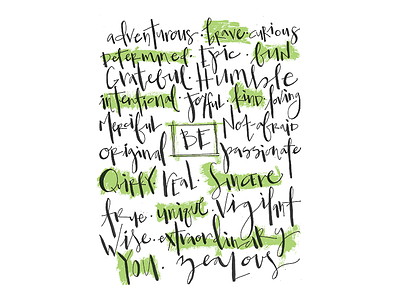 adventurous · brave · curious
Determined · Epic · FUN
Grateful · Humble
intentional · Joyful · kind · loving
Merciful BE Not-afraid
original passionate
Quirky real · Sincere
true · unique · Vigilant
Wise · extraordinary
YOU · zealous